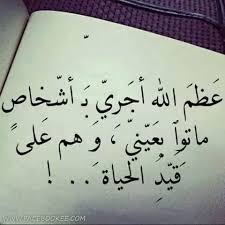 عَظمَ الله أجَريّ بَـ أشّخاص
ماتوآ بعَيّنيّ ، وَ هم عَلىَ
قَيّدِ الحياة َ. . . !
WWW.FACEBOOKEE.COM